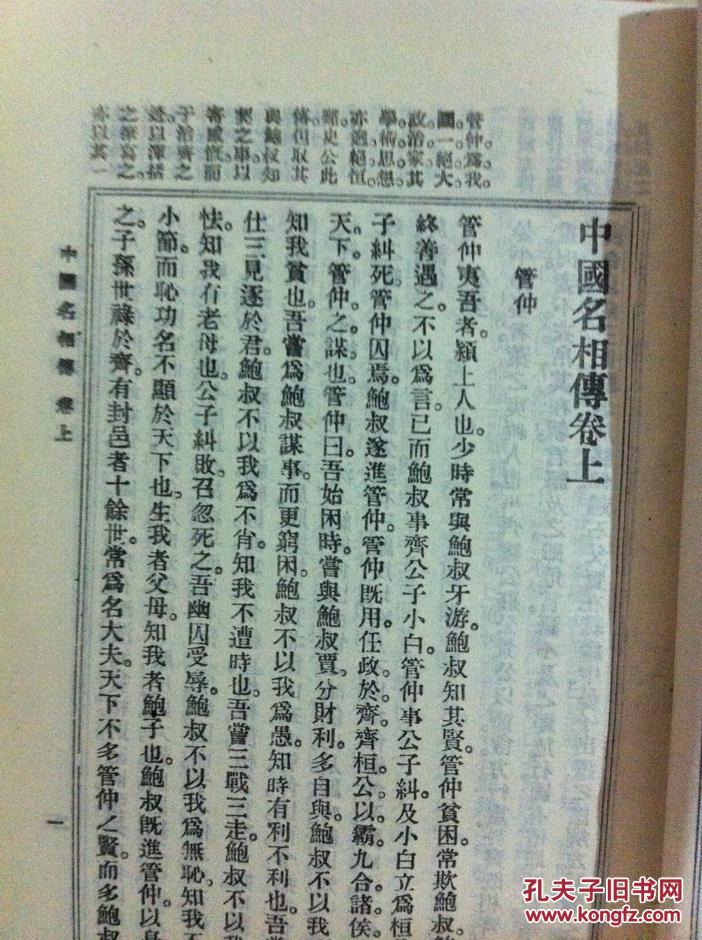 中國名相傳卷上
管仲
管仲爲我。
國一絕大
政治家其
學術思想
亦迥絕恒
蹊史公此
傳但取其
與鮑叔知
契之事以
寄感慨而
于治齊之
迹以渾括
之筆寫之
亦以其一
管仲夷吾者。潁上人也。少時常與鮑叔牙游。鮑叔知其賢。管仲貧困。常欺鮑叔。
終善遇之。不以爲言。已而鮑叔事齊公子小白。管仲事公子糾。及小白立爲桓
子糾死。管仲囚焉。鮑叔遂進管仲。管仲旣用。任政於齊。齊桓公以霸。九合諸侯。
天下。管仲之謀也。管仲曰。吾始困時。嘗與鮑叔賈。分財利多自與。鮑叔不以我
知我貧也。吾嘗爲鮑叔謀事。而更窮困。鮑叔不以我爲愚。知時有利不利也。吾嘗
仕三見逐於君。鮑叔不以我爲不肖。知我不遭時也。吾嘗三戰三走。鮑叔不以我
怯。知我有老母也。公子糾敗。召忽死之。吾幽囚受辱。鮑叔不以我爲無恥。知我不
小節。而恥功名不顯於天下也。生我者父母。知我者鮑子也。鮑叔旣進管仲。以身
之。子孫世祿於齊。有封邑者十餘世。常爲名大夫。天下不多管仲之賢。而多鮑叔
中國名相傳 卷上
一
孔夫子旧书网
www.kongfz.com